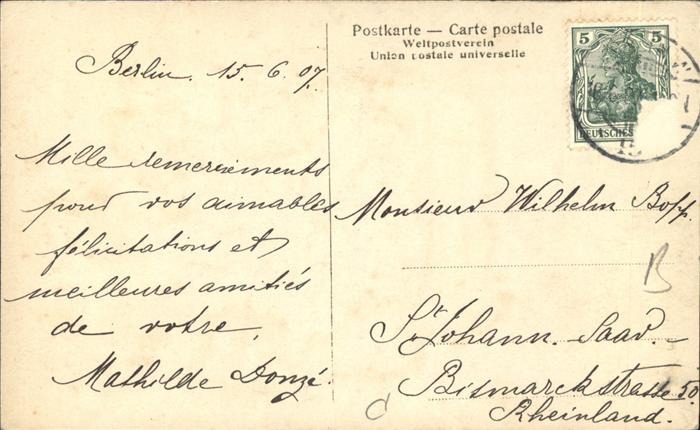 Postkarte — Carte postale
Weltpostverein
Union postale universelle
5 5
DEUTSCHES
Berlin. 15. 6. 07.
Mille remerciements
pour vos aimables
félicitations et
meilleures amitiés
de votre,
Mathilde Donzé.
Monsieur Wilhelm Bopp.
St Johann. Saar. -
Bismarckstrasse 50
Rheinland.
B